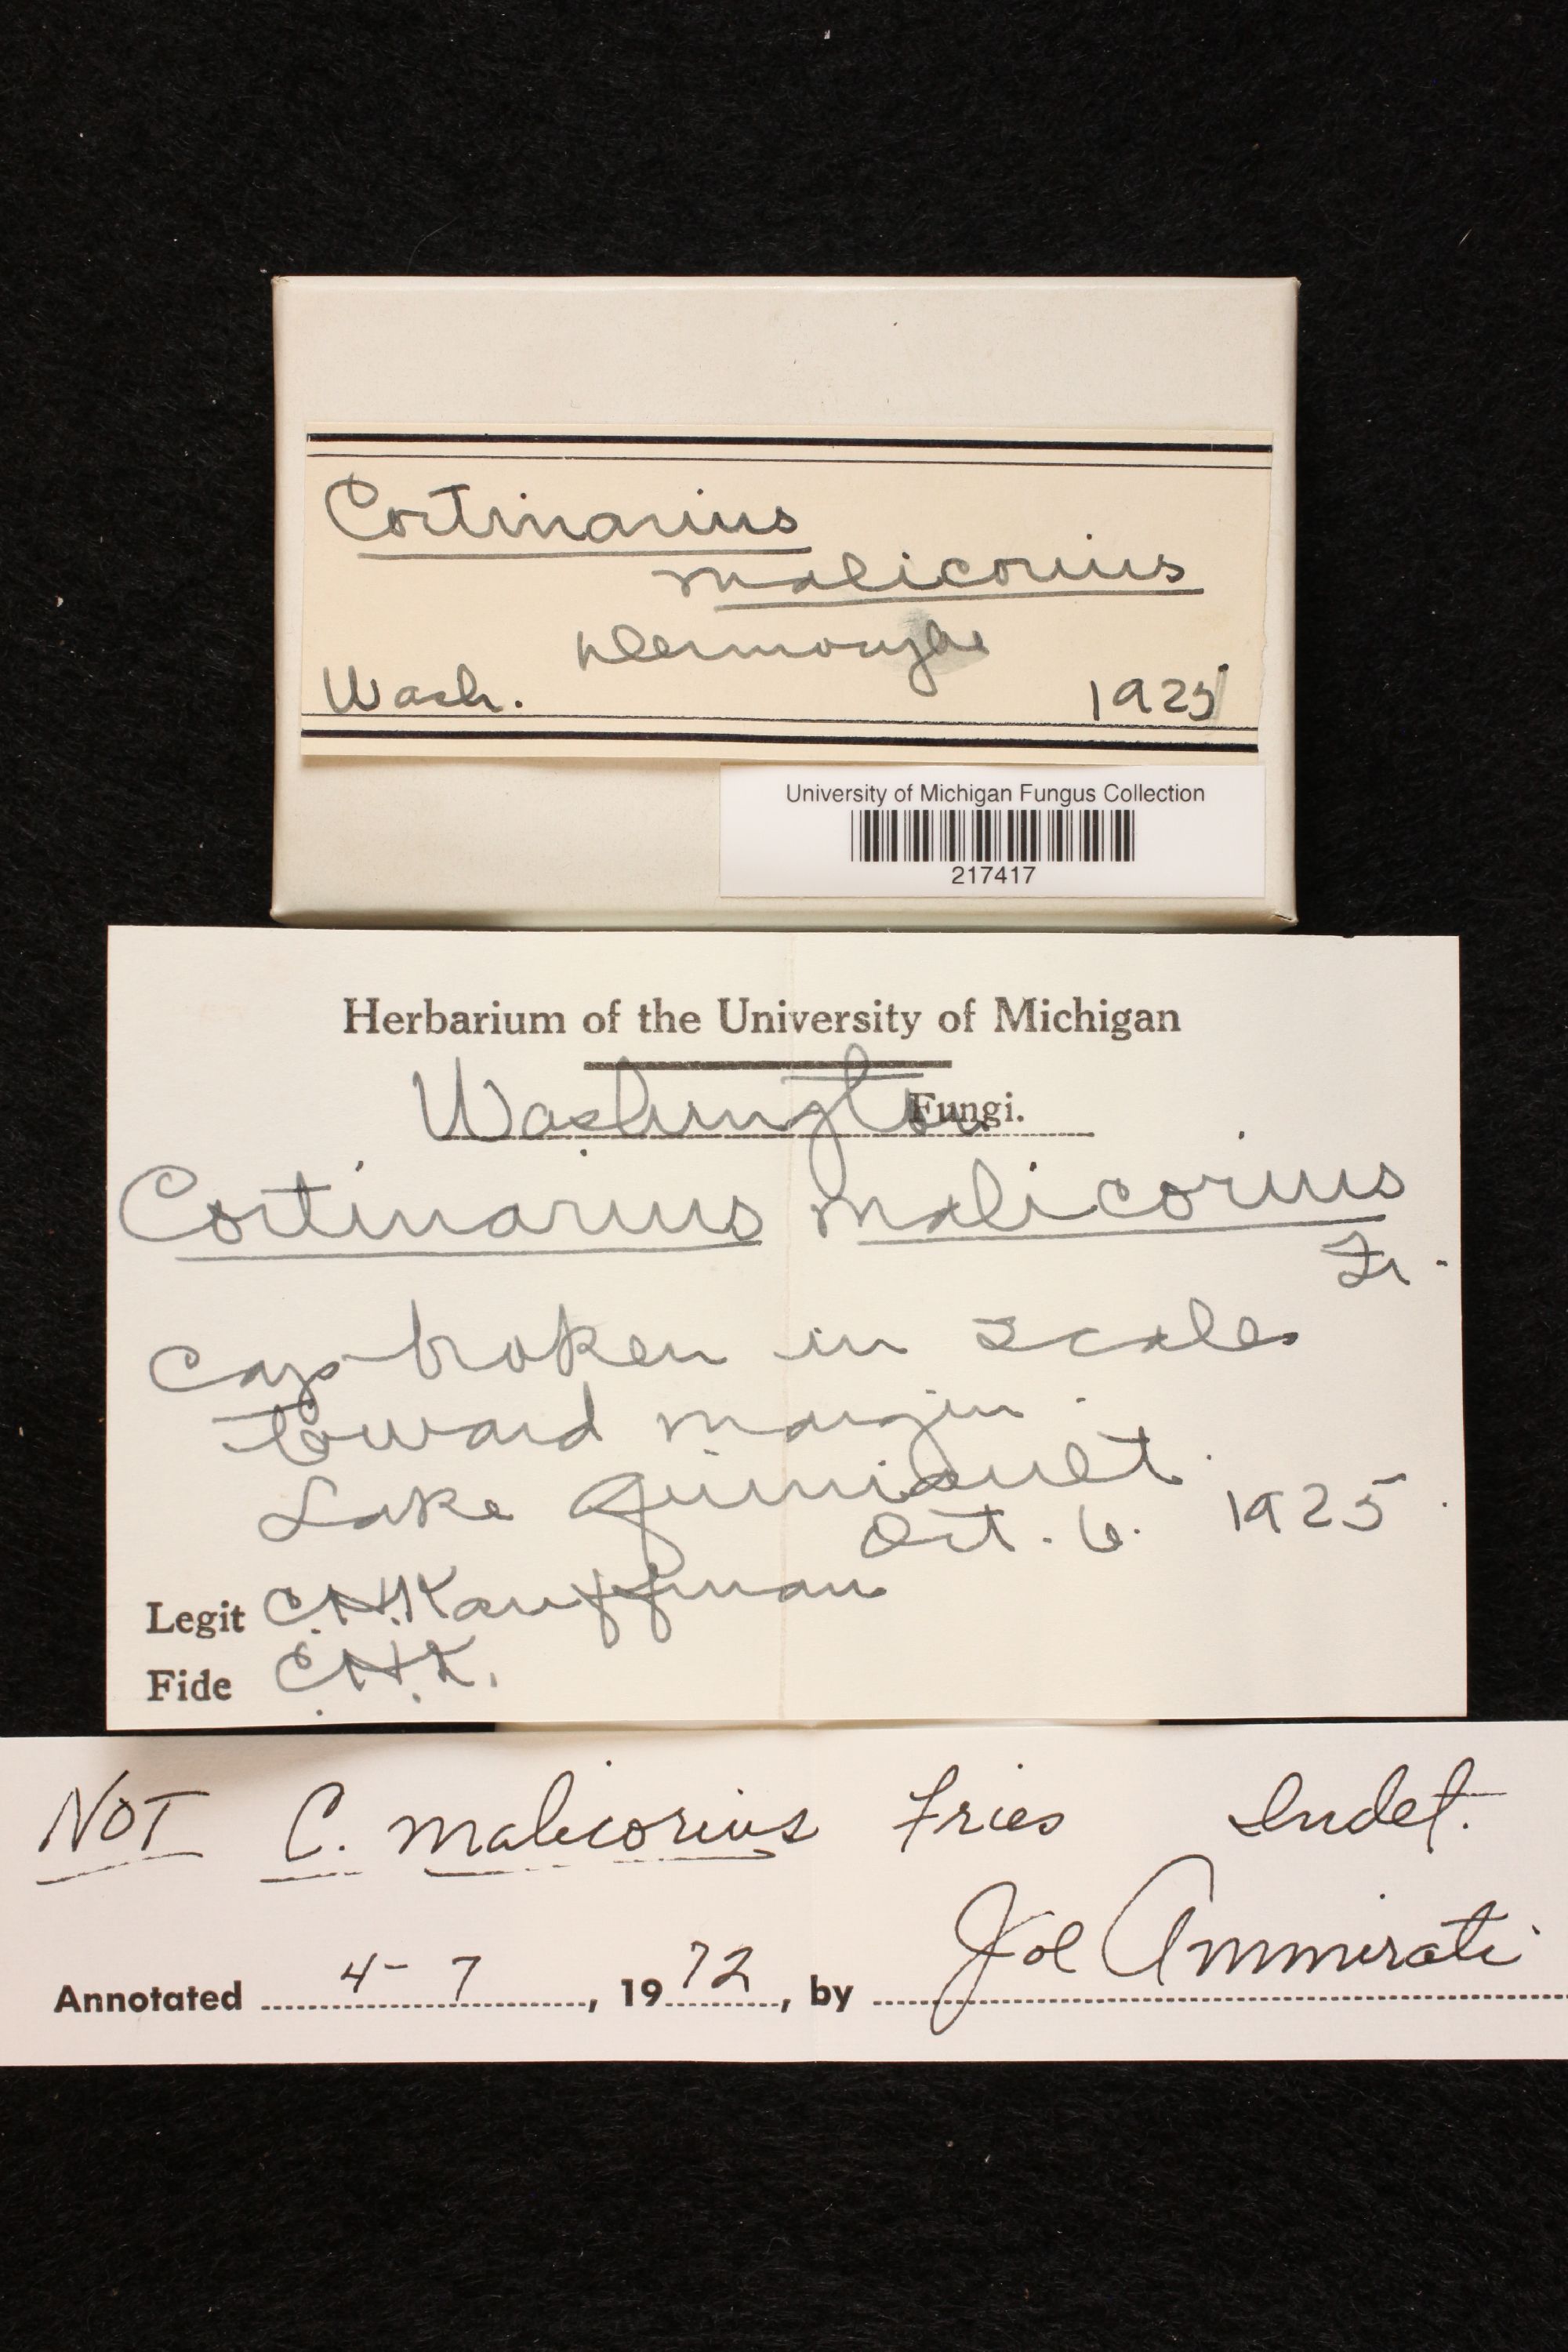 Cortinarius
malicorius
Dermocybe
Wash. 1925
University of Michigan Fungus Collection
217417
Herbarium of the University of Michigan
Washington Fungi.
Cortinarius malicorius
Fr.
Cap broken in scales
toward margin.
Lake Quiniault.
Oct. 6. 1925.
Legit C.H.Kauffman
Fide C.H.K.
NOT C. malicorius Fries Indet.
Annotated 4-7, 1972, by Joe Ammirati